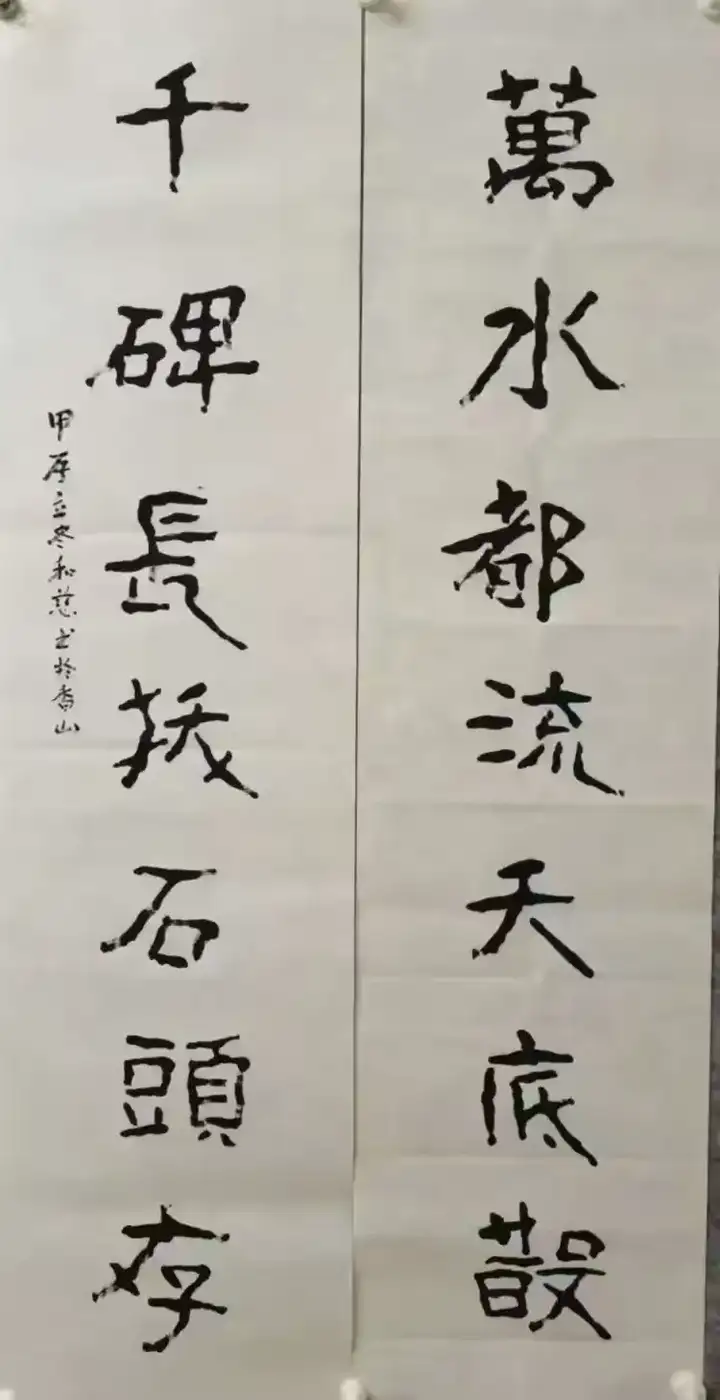 萬水都流天底散
千碑長石頭存
甲辰立冬和慈书於香山